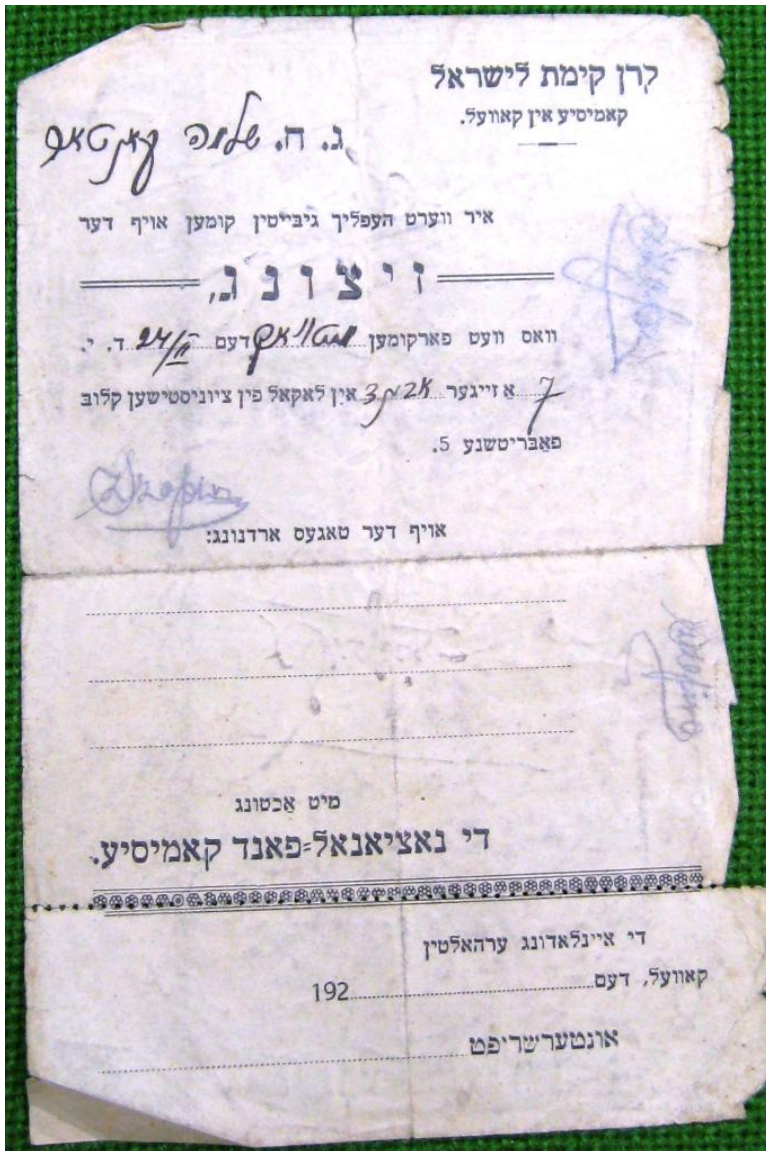 קרן קימת לישראל
קאמיסיע אין קאוועל.
ג. ח. שלמה
איר ווערט העפליך געבייטין קומען אויף דער
זיצונג,
וואס וועט פארקומען מיטוואך דעם 24/II ד. י.
7 אַזייגער אבענד אין לאקאל פין ציוניסטישען קלוב
פאַבריטשנע 5.
אויף דער טאגעס ארדנונג:
מיט אַכטונג
די נאציאנאל=פאנד קאמיסיע.
די איינלאדונג ערהאלטין
קאוועל, דעם 192
אונטערשריפט